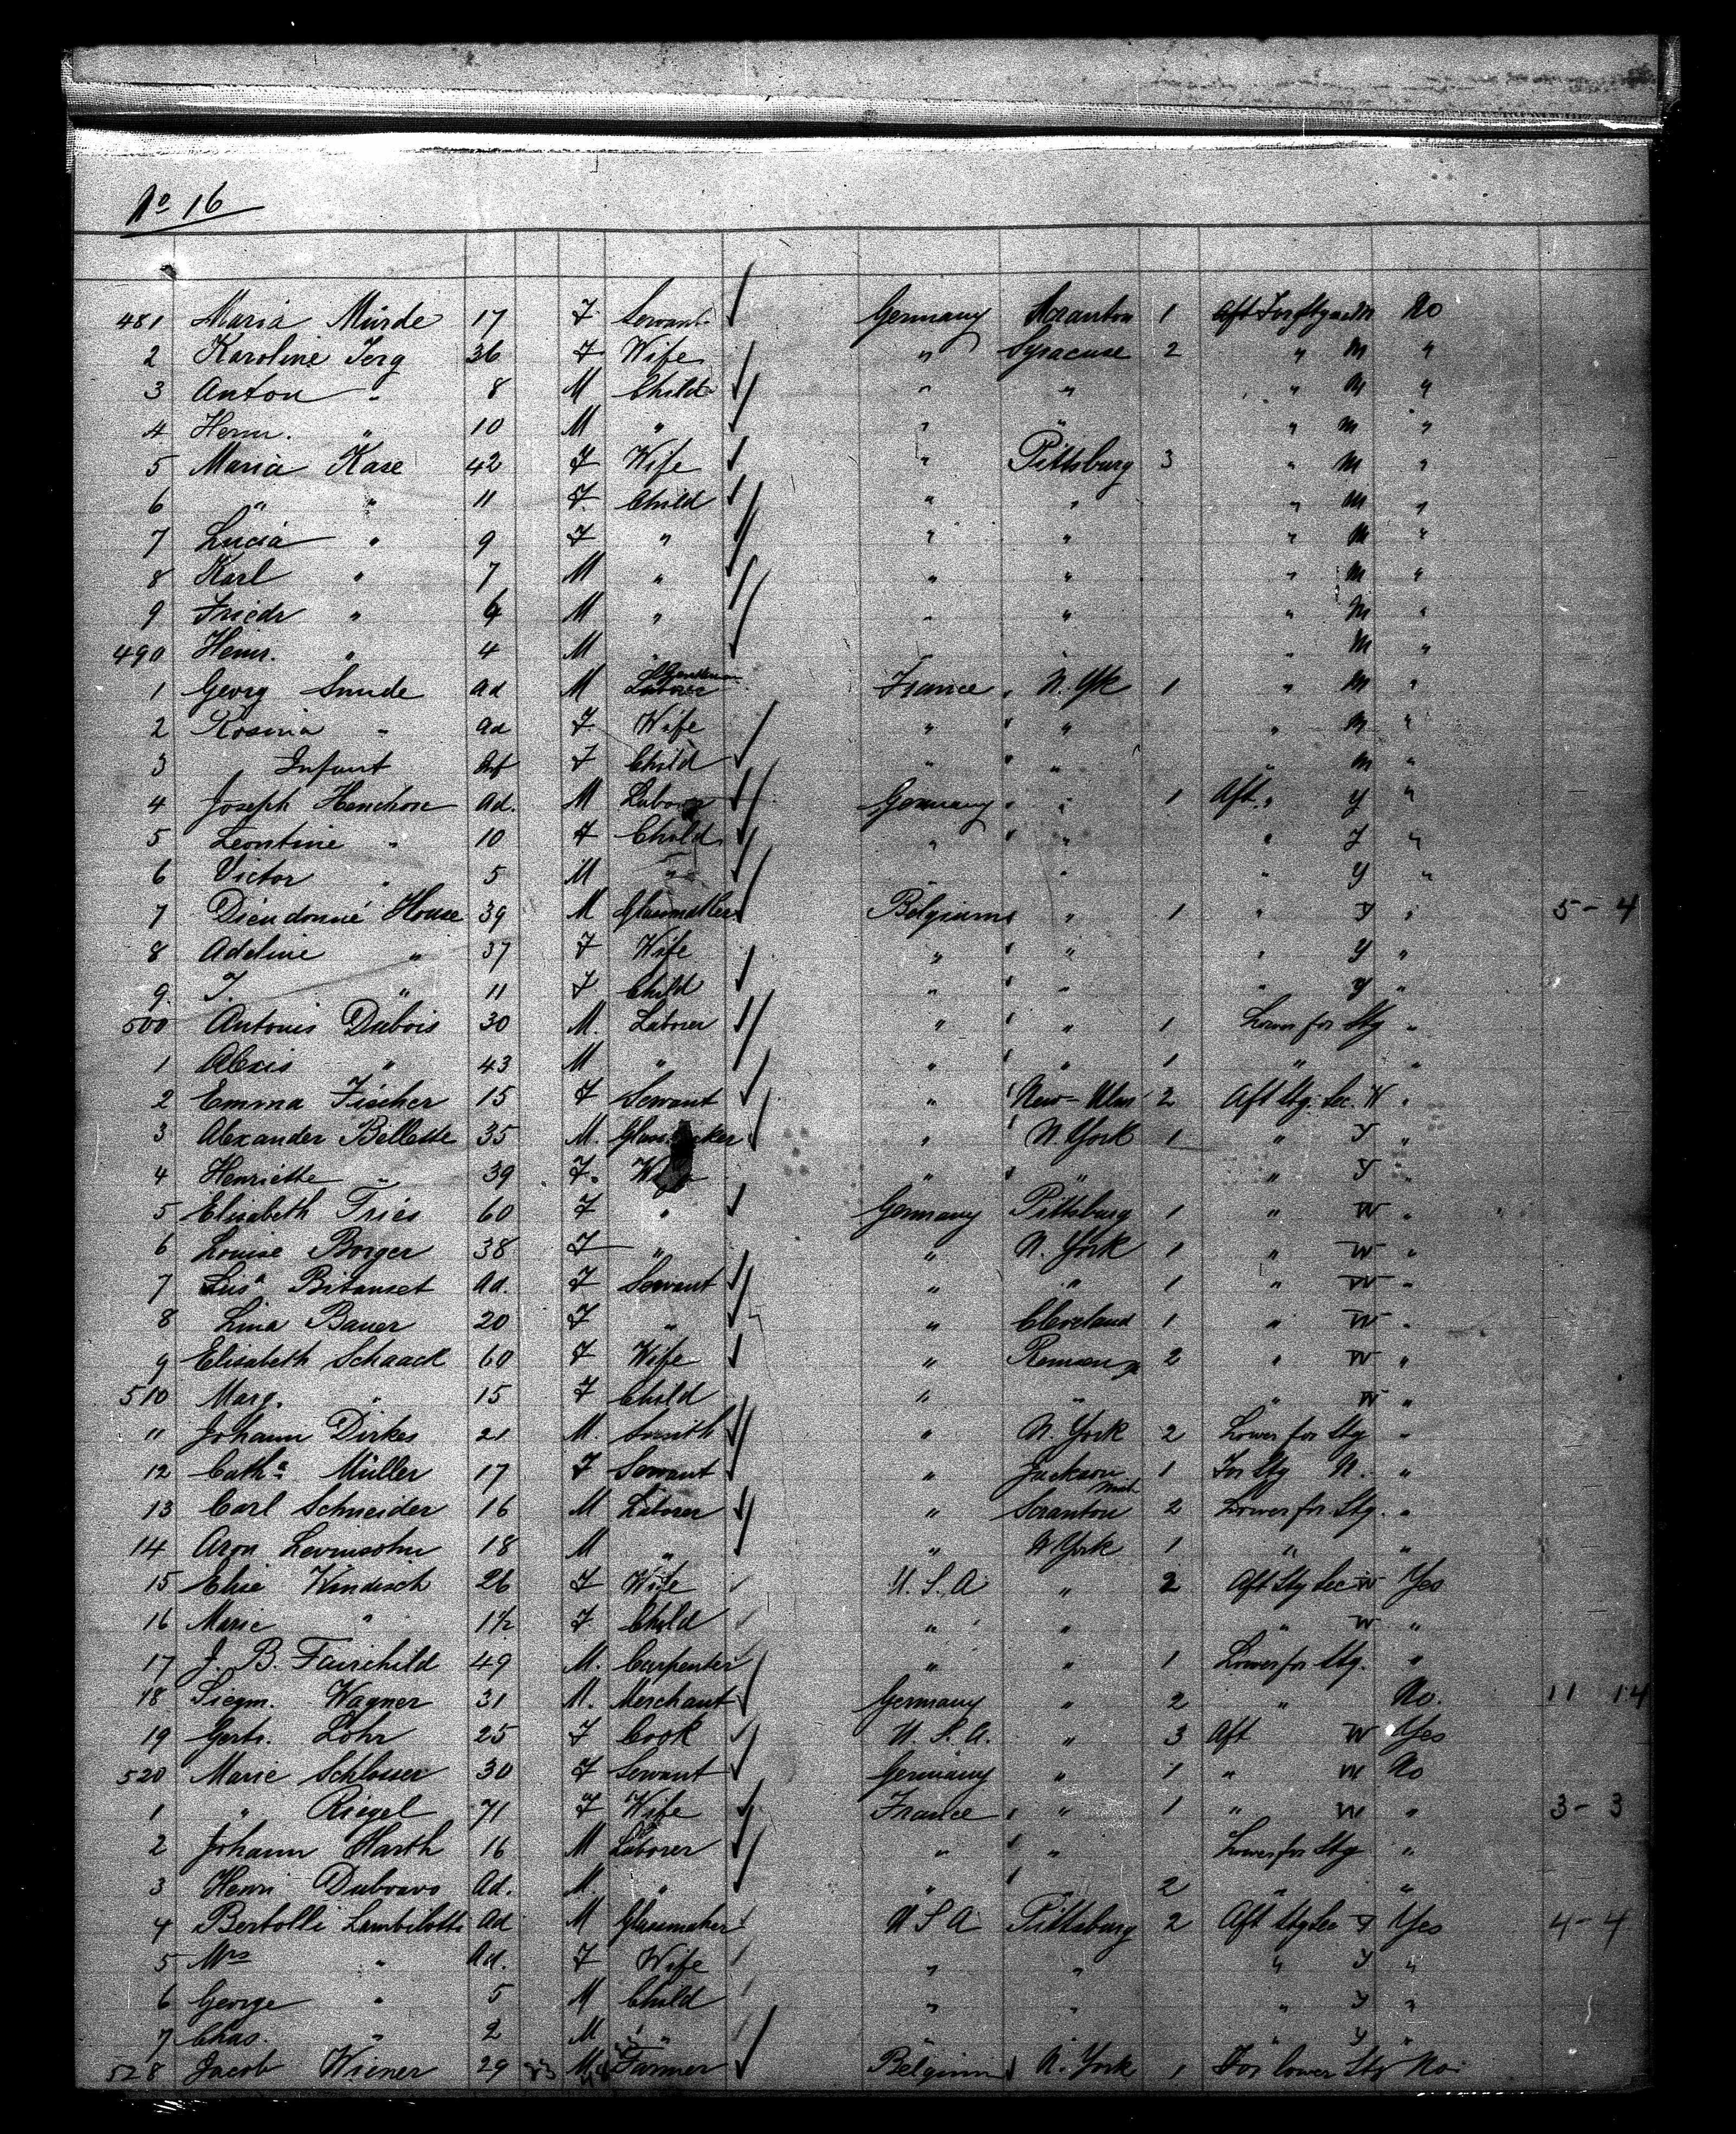 No 16
481 Maria Mürde 17 F Servant Germany Scranton 1 Aft No
2 Karoline Jerg 36 F Wife " Syracuse 2 " M "
3 Anton " 8 M Child " " " M "
4 Herm. " 10 M " " " " M "
5 Maria Kase 42 F Wife " Pittsburg 3 " M "
6 " " 11 F. Child " " " M "
7 Lucia " 9 F " " " " M "
8 Karl " 7 M " " " " M "
9 Friedr " 6 M " " " " M "
490 Heinr. " 4 M " " " " M "
1 Georg Smude Ad M Laborer France " N. Yk 1 " M "
2 Rosina " Ad F. Wife " " " M "
3 Infant Inf F Child " " " M "
4 Joseph Henchon Ad. M Labor Germany " 1 Aft " Y "
5 Leontine " 10 F Child " " " Y "
6 Victor " 5 M " " " " Y "
7 Dieudonné House 39 M Belgium " 1 " Y " 5 - 4
8 Adeline " 37 F Wife " " " Y "
9. J. " 11 F Child " " " Y "
500 Antonis Dubois 30 M. Laborer " " 1 Lower for Stg "
1 Alexis " 43 M " " " 1 " "
2 Emma Fischer 15 F Servant " New-Ulm 2 Aft Stg. Sec. W "
3 Alexander Bellette 35 M. " N. York 1 " Y "
4 Henriette " 39 F. " " " Y "
5 Elisabeth Fries 60 F " Germany Pittsburg 1 " W "
6 Louise Borger 38 F " " N. York 1 " W "
7 Bitanset Ad. F Servant " " 1 " W "
8 Lina Bauer 20 F " " Cleveland 1 " W "
9 Elisabeth Schaack 60 F Wife " Remsen 2 " W "
510 Marg. " 15 F Child " " " W "
11 Johann Dirkes 21 M. Smith " N. York 2 Lower for Stg "
12 Catha Müller 17 F Servant " Jackson Mich 1 For Stg N. "
13 Carl Schneider 16 M Laborer " Scranton 2 Lower for Stg. "
14 Aron Levinsohn 18 M " " N York 1 " "
15 Elise Windisch 26 F Wife U. S. A. " 2 Aft Stg Sec W Yes
16 Marie " 1½ F. Child " " " W "
17 J. B. Fairchild 49 M. Carpenter " " 1 Lower for Stg. "
18 Siegm. Wagner 31 M. Merchant Germany " 2 " No. 11 14
19 Gertr. Lohr 25 F Cook U. S. A. " 3 Aft W Yes
520 Marie Schlosser 30 F Servant Germany " 1 " W No
1 " Riegel 71 F Wife France " " 1 " W " 3 - 3
2 Johann Harth 16 M Laborer " " Lower for Stg "
3 Henri Ad. M. " " " 2 " "
4 Bertolli Lambilotte Ad M Glassmaker U S A Pittsburg 2 Aft Stg Sec Y Yes 4 - 4
5 Mrs " Ad. F Wife " " " Y "
6 George " 5 M Child " " " Y "
7 Chas. " 2 M " " " " Y "
528 Jacob Wiener 29 M. Farmer Belgium N. York 1 For lower Stg No.